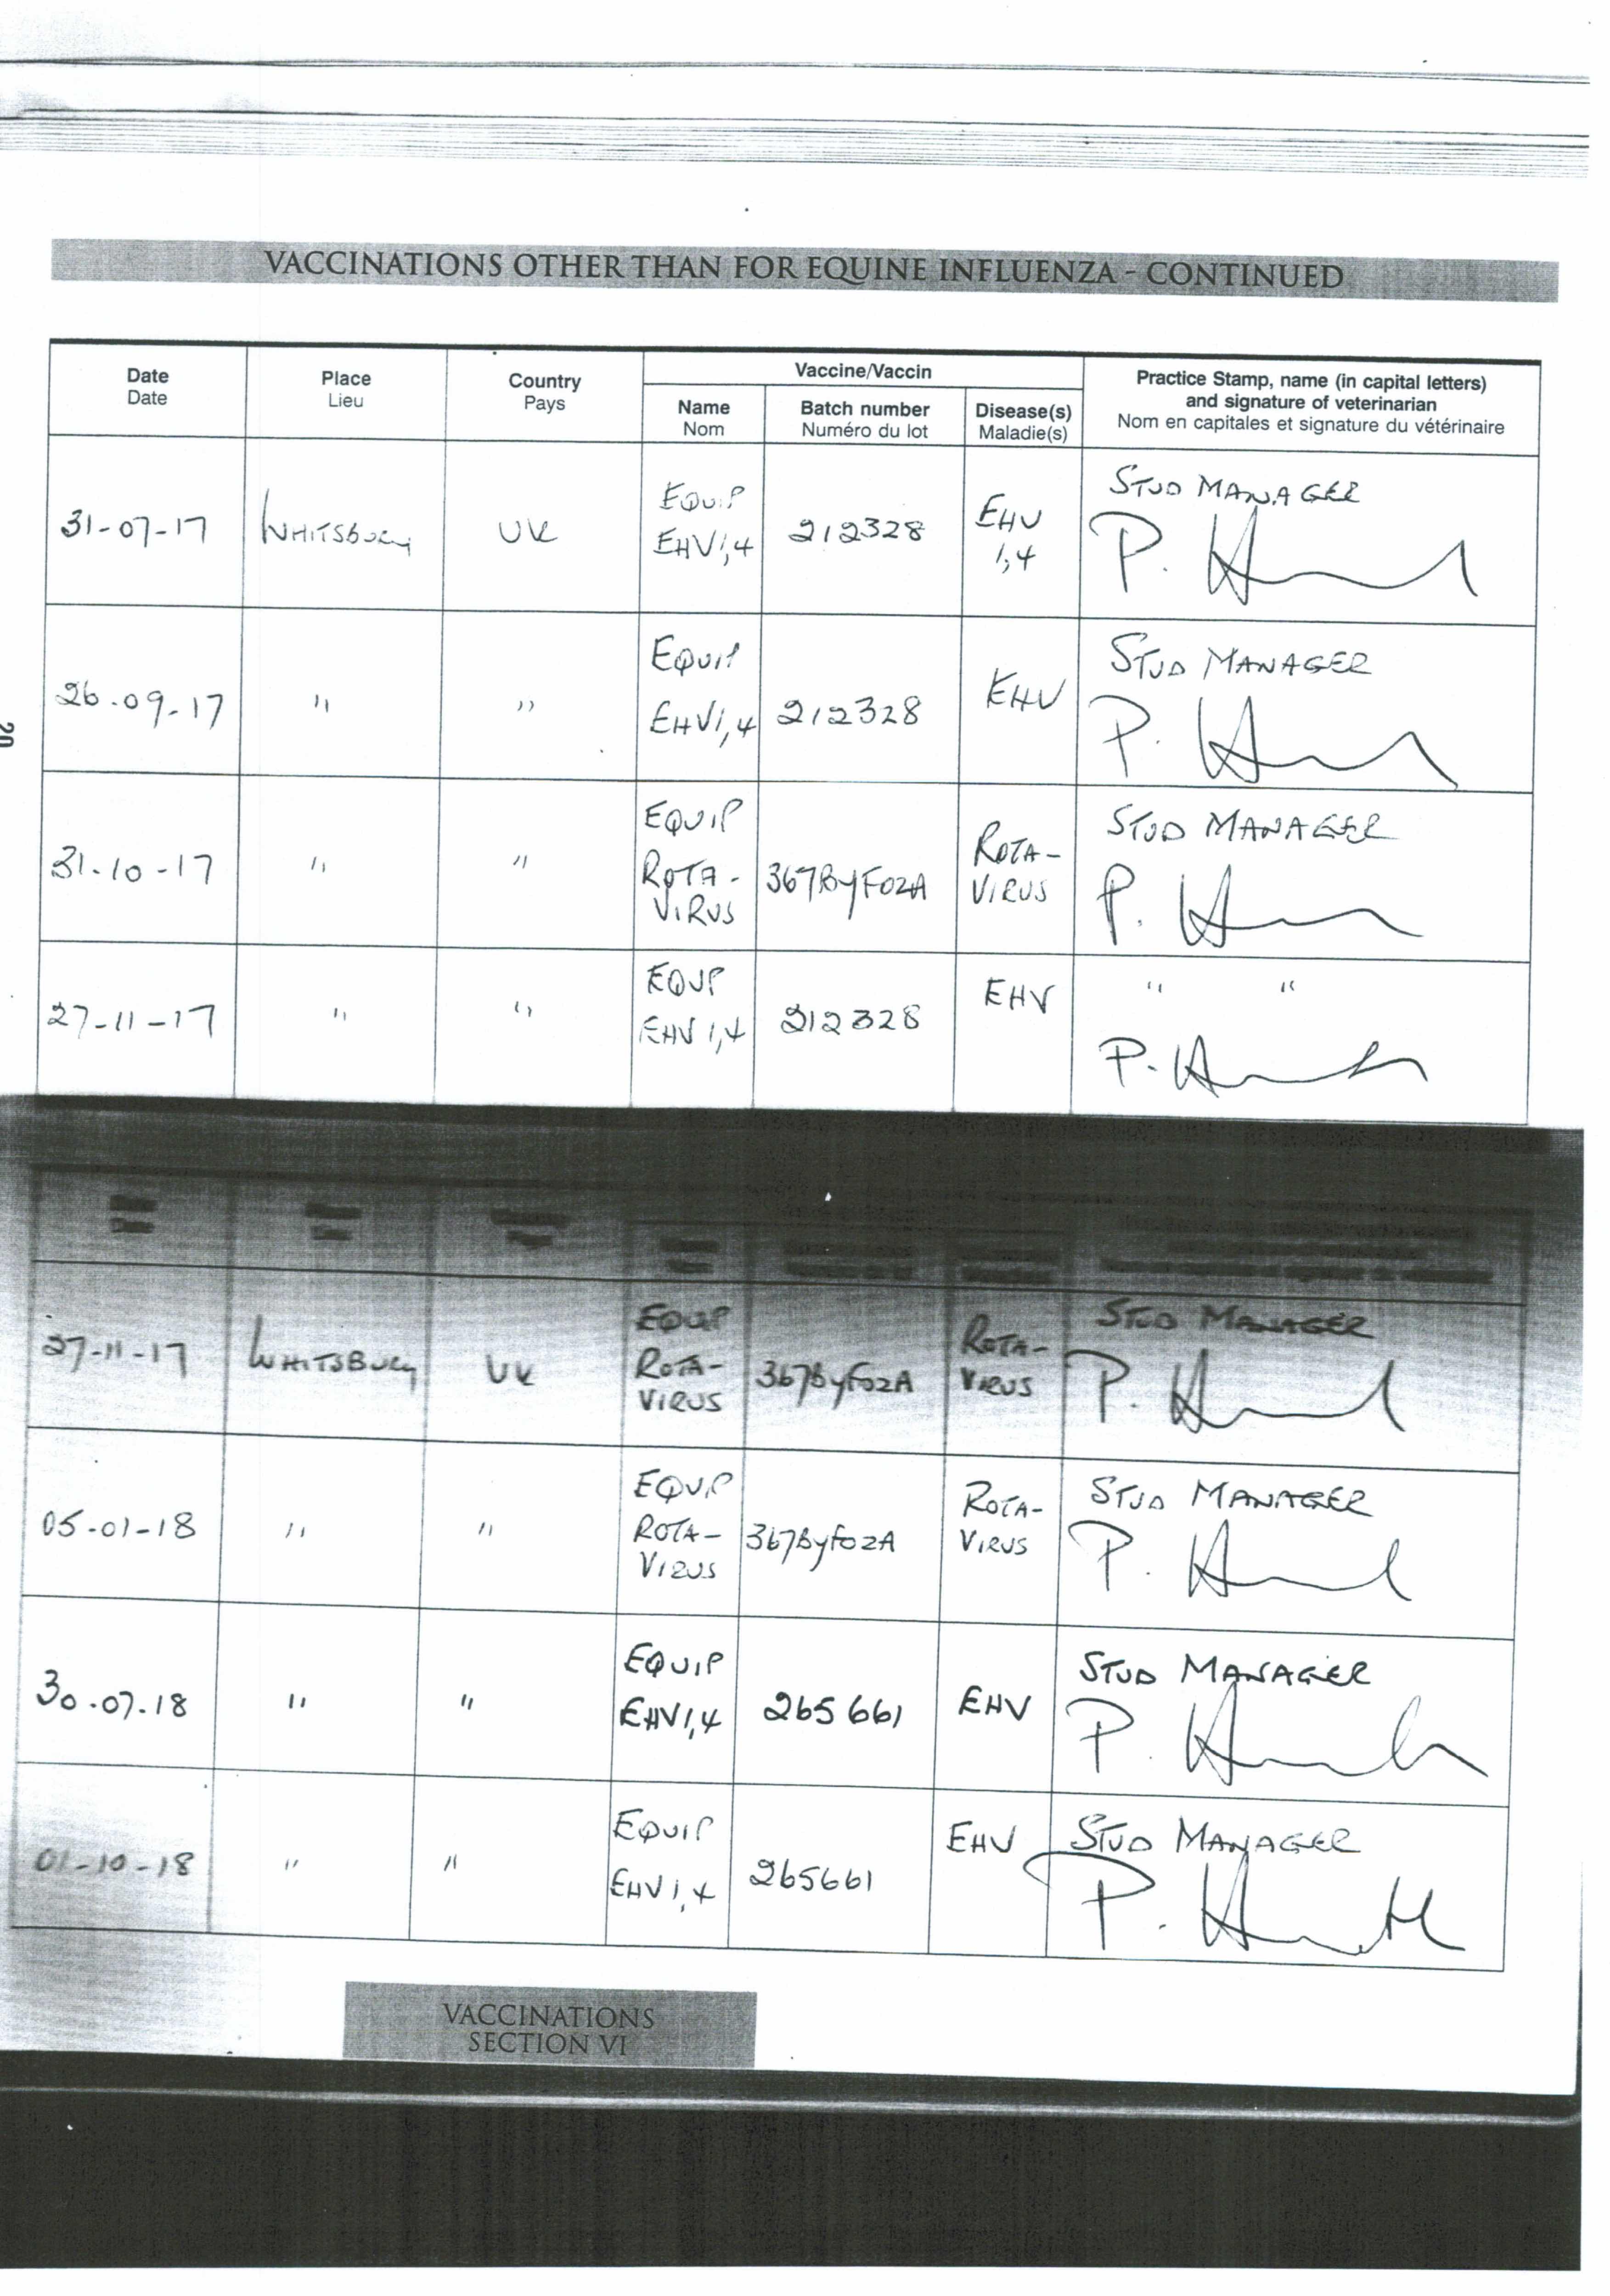 VACCINATIONS OTHER THAN FOR EQUINE INFLUENZA - CONTINUED
Date
Date
Place
Lieu
Country
Pays
Vaccine/Vaccin
Name
Nom
Batch number
Numéro du lot
Disease(s)
Maladie(s)
Practice Stamp, name (in capital letters)
and signature of veterinarian
Nom en capitales et signature du vétérinaire
31-07-17
WHITSBURY
UK
EQUIP
EHV1,4
212328
EHV
1,4
STUD MANAGER
26.09-17
"
"
EQUIP
EHV1,4
212328
EHV
STUD MANAGER
20
31-10-17
"
"
EQUIP
ROTA-
VIRUS
367ByF02A
ROTA-
VIRUS
STUD MANAGER
27-11-17
"
"
EQUIP
EHV 1,4
212328
EHV
" "
27-11-17
WHITSBURY
UK
EQUIP
ROTA-
VIRUS
367ByF02A
ROTA-
VIRUS
STUD MANAGER
05-01-18
"
"
EQUIP
ROTA-
VIRUS
367ByF02A
ROTA-
VIRUS
STUD MANAGER
30.07.18
"
"
EQUIP
EHV1,4
265661
EHV
STUD MANAGER
01-10-18
"
"
EQUIP
EHV1,4
265661
EHV
STUD MANAGER
VACCINATIONS
SECTION VI